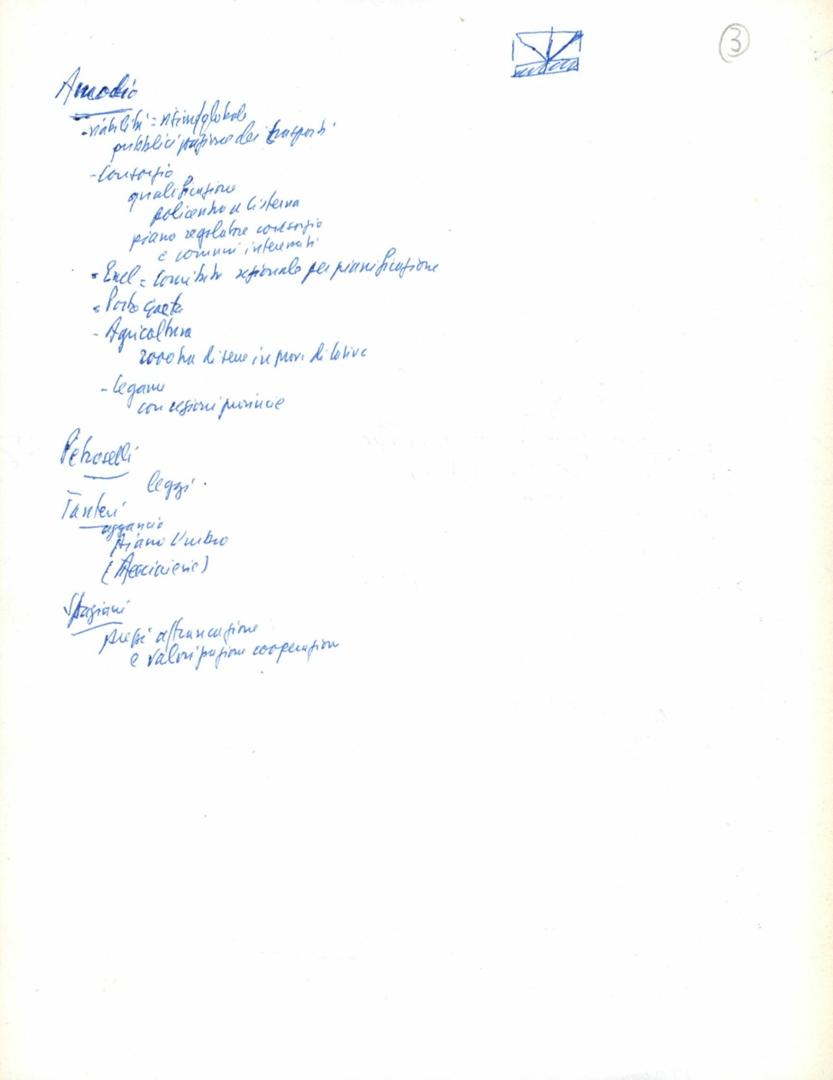 3
Amodio
- viabilità = visione globale
pubblicizzazione dei trasporti
- Consorzio
qualificazione
policentro a Cisterna
piano regolatore consorzio
e comuni interessati
- Enel = Comitato regionale per pianificazione
- Porto Gaeta
- Agricoltura
2000 ha di serre in prov. di Latina
- legami
con regioni province
Petroselli
leggi.
Tanteri
aggancio
Piano Umbro
(Acciaierie)
Spaziani
affrancazione
e valorizzazione cooperazione